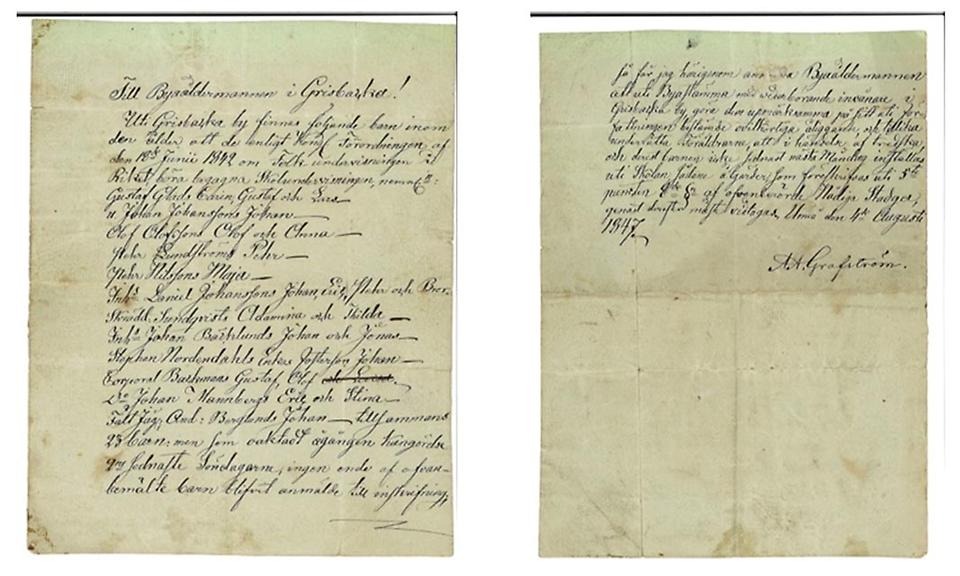 Till Byaåldermannen i Grisbacka!
Uti Grisbacka by finnes följande barn inom
den ålder att de enligt Kongl Förordningen af
den 18de Junii 1842 om Folk undervisningen i
Riket böra begagna Skolundervisningen, nemn:
Gustaf Glads Caren, Gustaf och Lars
u. Johan Johanssons Johan —
Olof Olofssons Olof och Anna —
Pehr Lundströms Pehr —
Pehr Nilssons Maja —
Inh Daniel Johanssons Johan, Eric, Pehr och Bror
Skrädd. Sundqvists Adamina och Hilda —
Inh Johan Bäcklunds Johan och Jonas —
Stephen Nordendahls Enkas Fosterson Johan —
Corporal Backmans Gustaf, Olof
Do Johan Mannbergs Eric och Stina —
Fält Jäg: And: Berglunds Johan — tillsammans
23 barn: men som oaktadt egången kungörelse
sednaste Söndagarne, ingen enda af ofvan-
bemälte barn blifvit anmälde till inskrifning,
så får jag härigenom Byaåldermannen
att uti Byastämma med vederbörande invånare i
Grisbacka by göra dem uppmärksamma på sitt uti för-
fattningen bestämde ovilkorliga åliggande och tillika
underrätta Föräldrarne, att i händelse af tredska
och derest barnen icke sednast nästa Måndag inställas
uti Skolan, sådane åtgärder, som föreskrifvas uti 5te
puncten af ofvanberörde Nådige Stadga,
genast derefter måste vidtagas. Umeå den 4de Augusti
1847
A. A. Grafström.